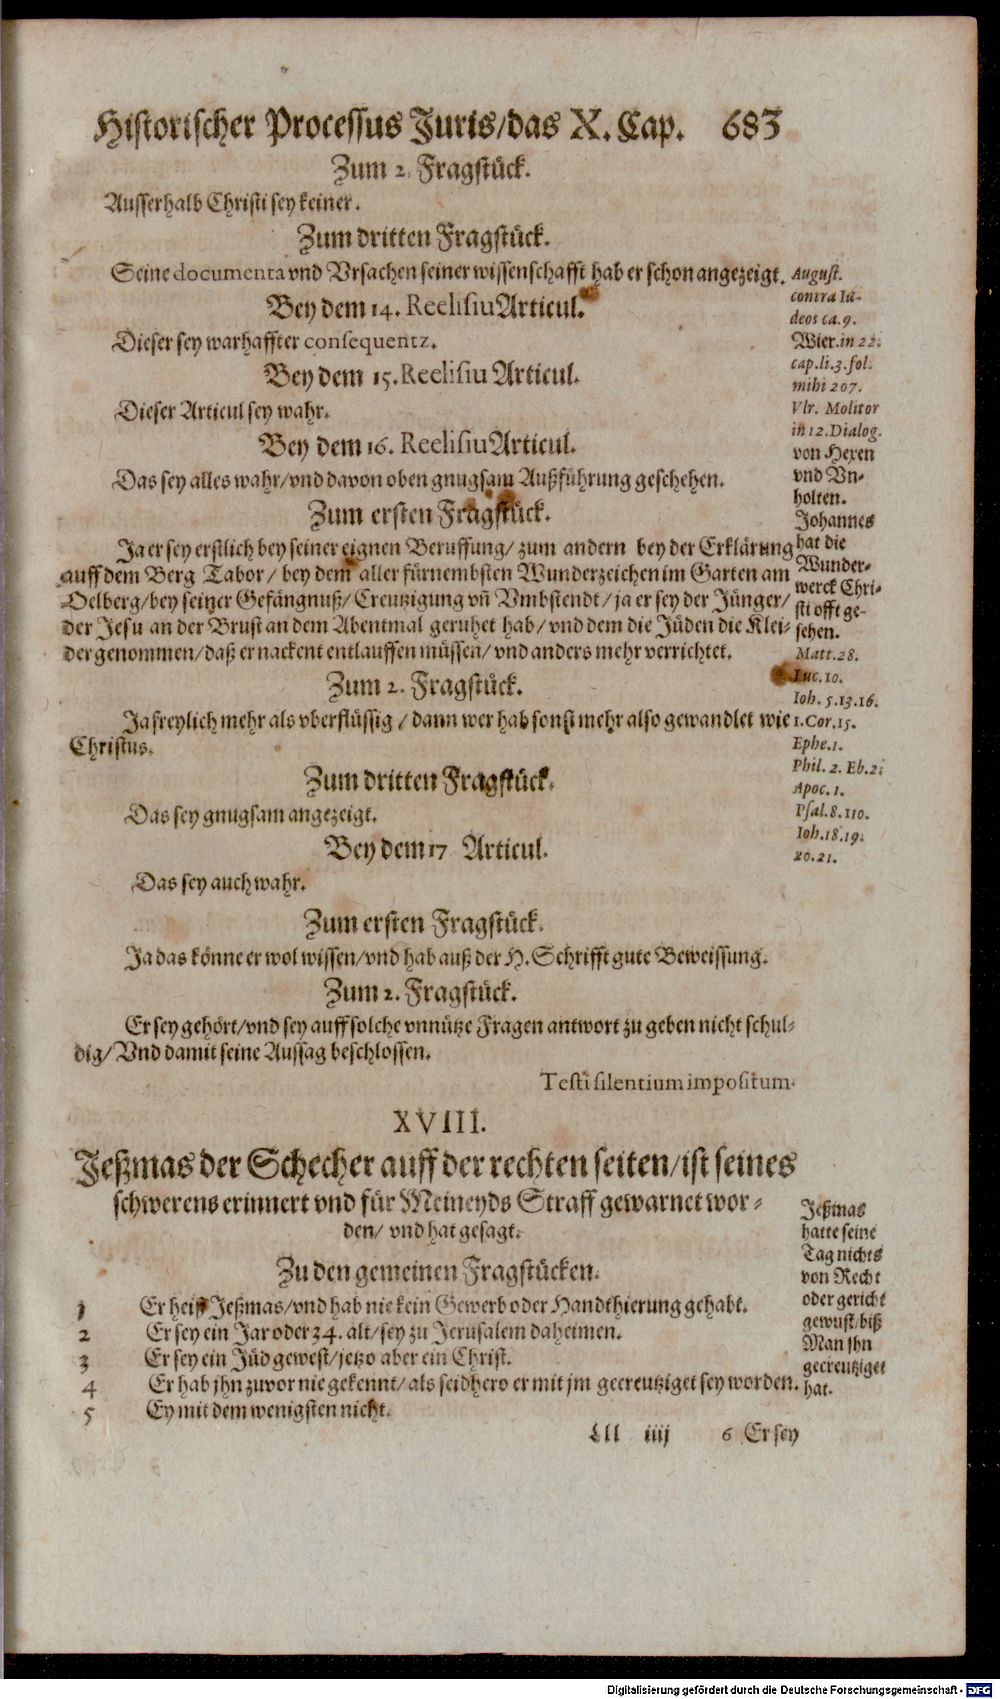 Historischer Processus Juris/das X. Cap. 683
Zum 2. Fragstück.
Ausserhalb Christi sey keiner.
Zum dritten Fragstück.
Seine documenta vnd Vrsachen seiner wissenschafft hab er schon angezeigt.
Bey dem 14. Reelisiu Articul.
Dieser sey warhaffter consequentz.
Bey dem 15. Reelisiu Articul.
Dieser Articul sey wahr.
Bey dem 16. Reelisiu Articul.
Das sey alles wahr/vnd davon oben gnugsam Außführung geschehen.
Zum ersten Fragstück.
Ja er sey erstlich bey seiner eignen Beruffung/ zum andern bey der Erklärung
auff dem Berg Tabor/ bey dem aller fürnembsten Wunderzeichen im Garten am
Oelberg/bey seiner Gefängnuß/Creutzigung vn̄ Vmbstendt/ja er sey der Jünger/
der Jesu an der Brust an dem Abentmal geruhet hab/ vnd dem die Jüden die Klei-
der genommen/daß er nackent entlauffen müssen/ vnd anders mehr verrichtet.
Zum 2. Fragstück.
Ja freylich mehr als vberflüssig/ dann wer hab sonst mehr also gewandlet wie
Christus.
Zum dritten Fragstück.
Das sey gnugsam angezeigt.
Bey dem 17 Articul.
Das sey auch wahr.
Zum ersten Fragstück.
Ja das könne er wol wissen/vnd hab auß der H. Schrifft gute Beweissung.
Zum 2. Fragstück.
Er sey gehört/vnd sey auff solche vnnütze Fragen antwort zu geben nicht schul-
dig/ Vnd damit seine Aussag beschlossen.
Testi silentium impositum.
August.
contra Iu-
deos ca. 9.
Wier. in 22.
cap. li. 3. fol.
mihi 207.
Vlr. Molitor
in 12. Dialog.
von Hexen
vnd Vn-
holten.
Johannes
hat die
Wunder-
werck Chri-
sti offt ge-
sehen.
Matt. 28.
Luc. 10.
Ioh. 5.13.16.
1. Cor. 15.
Ephe. 1.
Phil. 2. Eb. 2.
Apoc. 1.
Psal. 8. 110.
Ioh. 18. 19.
20. 21.
XVIII.
Jeßmas der Schecher auff der rechten seiten/ist seines
schwerens erinnert vnd für Meineyds Straff gewarnet wor-
den/ vnd hat gesagt.
Zu den gemeinen Fragstücken.
1 Er heiß Jeßmas/vnd hab nie kein Gewerb oder Handthierung gehabt.
2 Er sey ein Jar oder 34. alt/sey zu Jerusalem daheimen.
3 Er sey ein Jüd gewest/jetzo aber ein Christ.
4 Er hab jhn zuvor nie gekennt/als seidhero er mit jm gecreutziget sey worden.
5 Ey mit dem wenigsten nicht.
Jeßmas
hatte seine
Tag nichts
von Recht
oder gericht
gewust/biß
Man jhn
gecreutziget
hat.
Lll iiij 6 Er sey
Digitalisierung gefördert durch die Deutsche Forschungsgemeinschaft - DFG